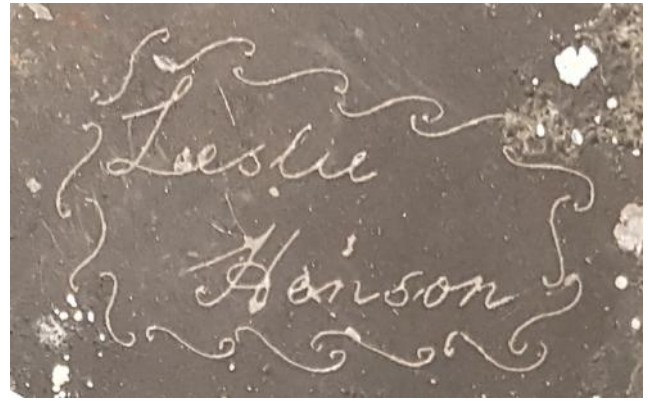 Leslie
Henson